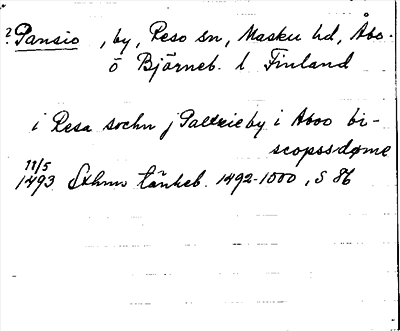 ? Pansio, by, Reso sn, Masku hd, Åbo-
o Björneb. l Finland
i Resa sochn j Paltzieby i Aboo bi-
scopssdøme
11/5
1493 Sthm tänkeb. 1492-1500, S 86